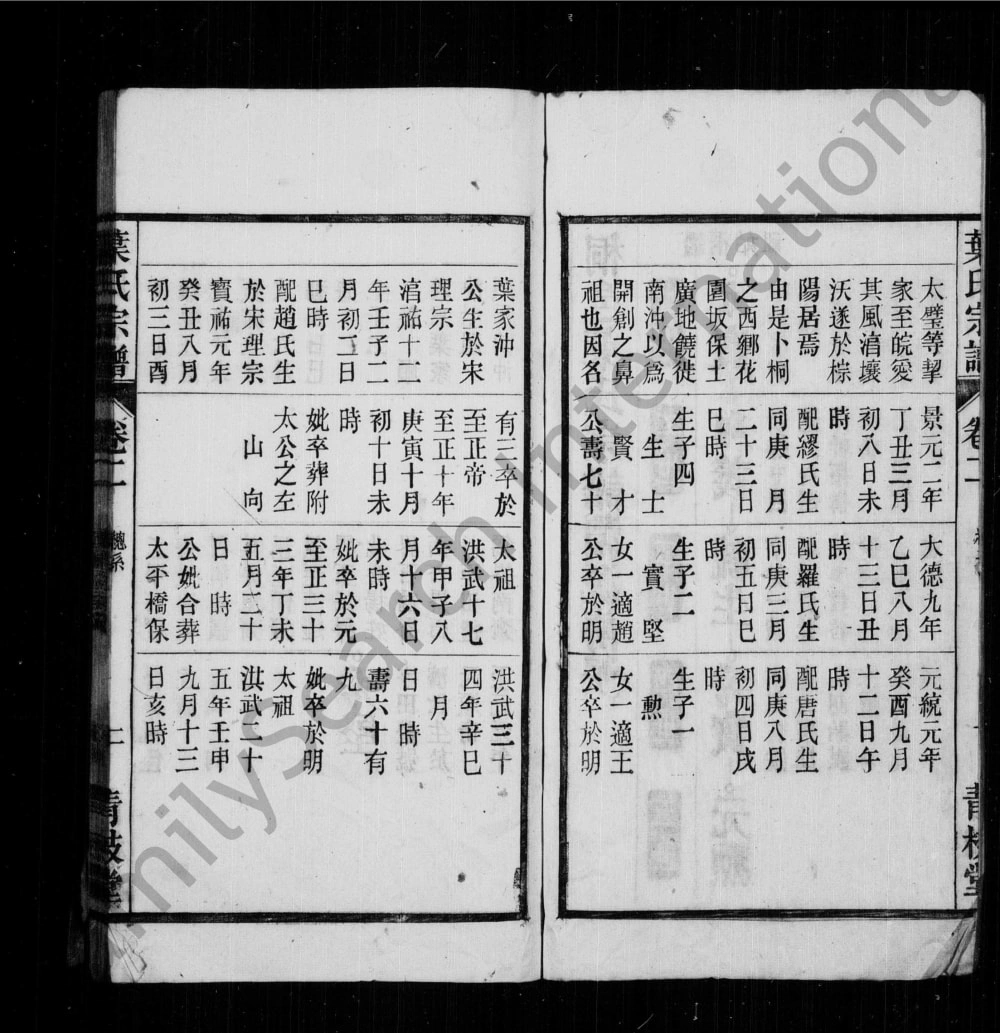 葉氏宗譜
卷二
太璧等挈
家至皖愛
其風淯壤
沃遂於棕
陽居焉
由是卜桐
之西鄉花
園坂保土
廣地饒徙
南沖以爲
開創之鼻
祖也因名
景元二年
丁丑三月
初八日未
時
配繆氏生
同庚 月
二十三日
巳時
生子四
生 士
賢 才
公壽七十
大德九年
乙巳八月
十三日丑
時
配羅氏生
同庚三月
初五日巳
時
生子二
實 堅
女一適趙
公卒於明
元統元年
癸酉九月
十二日午
時
配唐氏生
同庚八月
初四日戌
時
生子一
勲
女一適王
公卒於明
葉家沖
公生於宋
理宗
淯祐十二
年壬子二
月初二日
巳時
配趙氏生
於宋理宗
寶祐元年
癸丑八月
初三日酉
有三卒於
至正帝
至正十年
庚寅十月
初十日未
時
妣卒葬附
太公之左
山 向
太祖
洪武十七
年甲子八
月十六日
未時
妣卒於元
至正三十
三年丁未
五月二十
日 時
公妣合葬
太平橋保
洪武三十
四年辛巳
月
日 時
壽六十有
九
妣卒於明
太祖
洪武二十
五年壬申
九月十三
日亥時
葉氏宗譜
卷二
總系
二
青枝堂